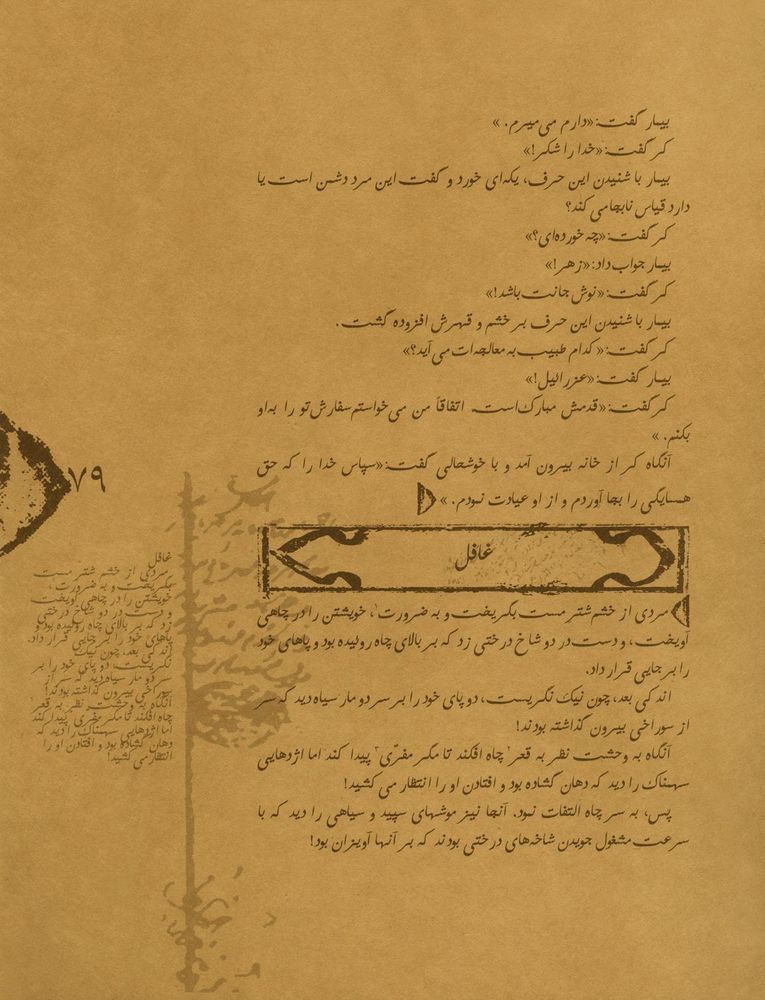 بیمار گفت: «دارم می‌میرم.»
کر گفت: «خدا را شکر!»
بیمار با شنیدن این حرف، یکه‌ای خورد و گفت این مرد دشمن است یا
دارد قیاس نابجا می‌کند؟
کر گفت: «چه خورده‌ای؟»
بیمار جواب داد: «زهر!»
کر گفت: «نوش جانت باشد!»
بیمار با شنیدن این حرف بر خشم و قهرش افزوده گشت.
کر گفت: «کدام طبیب به معالجه‌ات می‌آید؟»
بیمار گفت: «عزرائیل!»
کر گفت: «قدمش مبارک است. اتفاقاً من می‌خواستم سفارش تو را به او
بکنم.»
آنگاه کر از خانه بیرون آمد و با خوشحالی گفت: «سپاس خدا را که حق
همسایگی را بجا آوردم و از او عیادت نمودم.»
غافل
مردی از خشم شتر مست بگریخت و به ضرورت۱، خویشتن را در چاهی
آویخت، و دست در دو شاخ درختی زد که بر بالای چاه روئیده بود و پاهای خود
را بر جایی قرار داد.
اندکی بعد، چون نیک نگریست، دو پای خود را بر سر دو مار سیاه دید که سر
از سوراخی بیرون گذاشته بودند!
آنگاه به وحشت نظر به قعر۲ چاه افکند تا مگر مفرّی۳ پیدا کند اما اژدهایی
سهمناک را دید که دهان گشاده بود و افتادن او را انتظار می‌کشید!
پس، به سر چاه التفات نمود. آنجا نیز موشهای سپید و سیاهی را دید که با
سرعت مشغول جویدن شاخه‌های درختی بودند که بر آنها آویزان بود!
۷۹
غافل
مردی از خشم شتر مست
بگریخت و به ضرورت،
خویشتن را در چاهی آویخت
و دست در دو شاخ درختی
زد که بر بالای چاه روئیده بود و
پاهای خود را بر جایی قرار داد.
اندکی بعد، چون نیک
نگریست، دو پای خود را بر
سر دو مار سیاه دید که سر از
سوراخی بیرون گذاشته بودند!
آنگاه به وحشت نظر به قعر
چاه افکند تا مگر مفری پیدا کند
اما اژدهایی سهمناک را دید که
دهان گشاده بود و افتادن او را
انتظار می‌کشید!